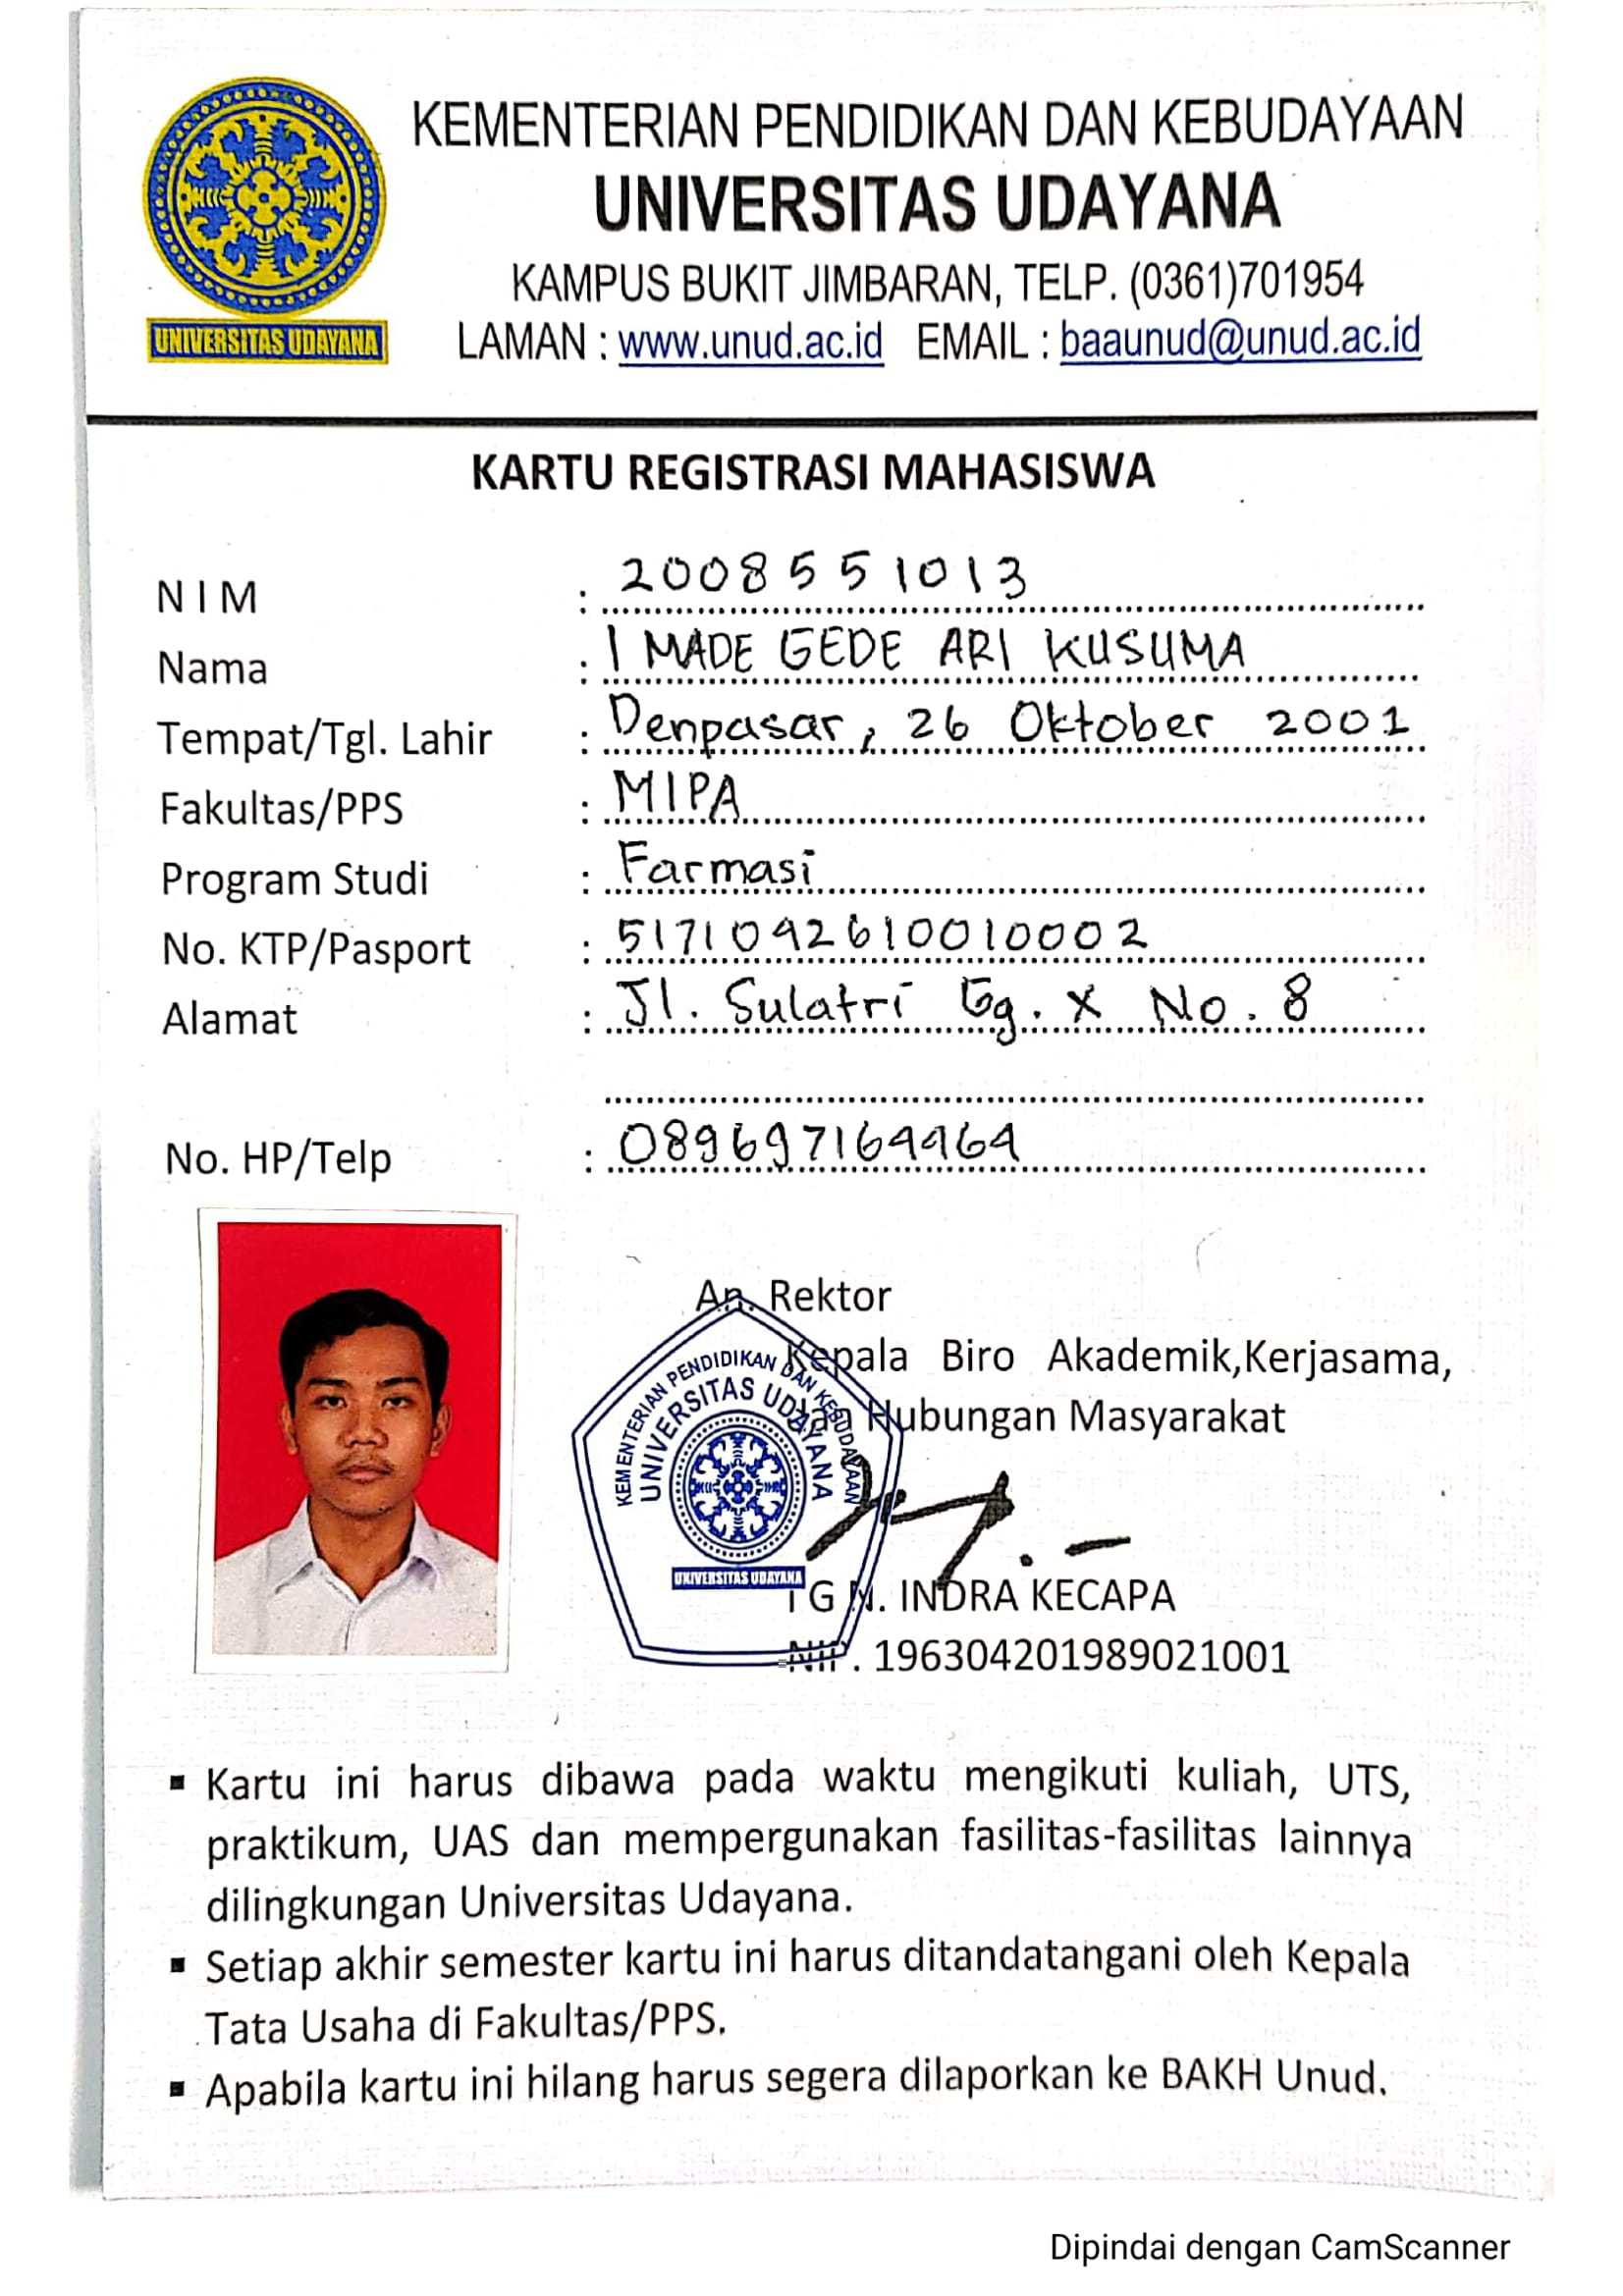 KEMENTERIAN PENDIDIKAN DAN KEBUDAYAAN
UNIVERSITAS UDAYANA
KAMPUS BUKIT JIMBARAN, TELP. (0361)701954
LAMAN : www.unud.ac.id EMAIL : baaunud@unud.ac.id
UNIVERSITAS UDAYANA
KARTU REGISTRASI MAHASISWA
NIM : 2008551013
Nama : I MADE GEDE ARI KUSUMA
Tempat/Tgl. Lahir : Denpasar, 26 Oktober 2001
Fakultas/PPS : MIPA
Program Studi : Farmasi
No. KTP/Pasport : 5171092610010002
Alamat : Jl. Sulatri Gg. X No. 8
No. HP/Telp : 089697164464
An. Rektor
Kepala Biro Akademik,Kerjasama,
dan Hubungan Masyarakat
KEMENTERIAN PENDIDIKAN DAN KEBUDAYAAN
UNIVERSITAS UDAYANA
UNIVERSITAS UDAYANA
I G N. INDRA KECAPA
NIP. 196304201989021001
▪ Kartu ini harus dibawa pada waktu mengikuti kuliah, UTS,
praktikum, UAS dan mempergunakan fasilitas-fasilitas lainnya
dilingkungan Universitas Udayana.
▪ Setiap akhir semester kartu ini harus ditandatangani oleh Kepala
Tata Usaha di Fakultas/PPS.
▪ Apabila kartu ini hilang harus segera dilaporkan ke BAKH Unud.
Dipindai dengan CamScanner